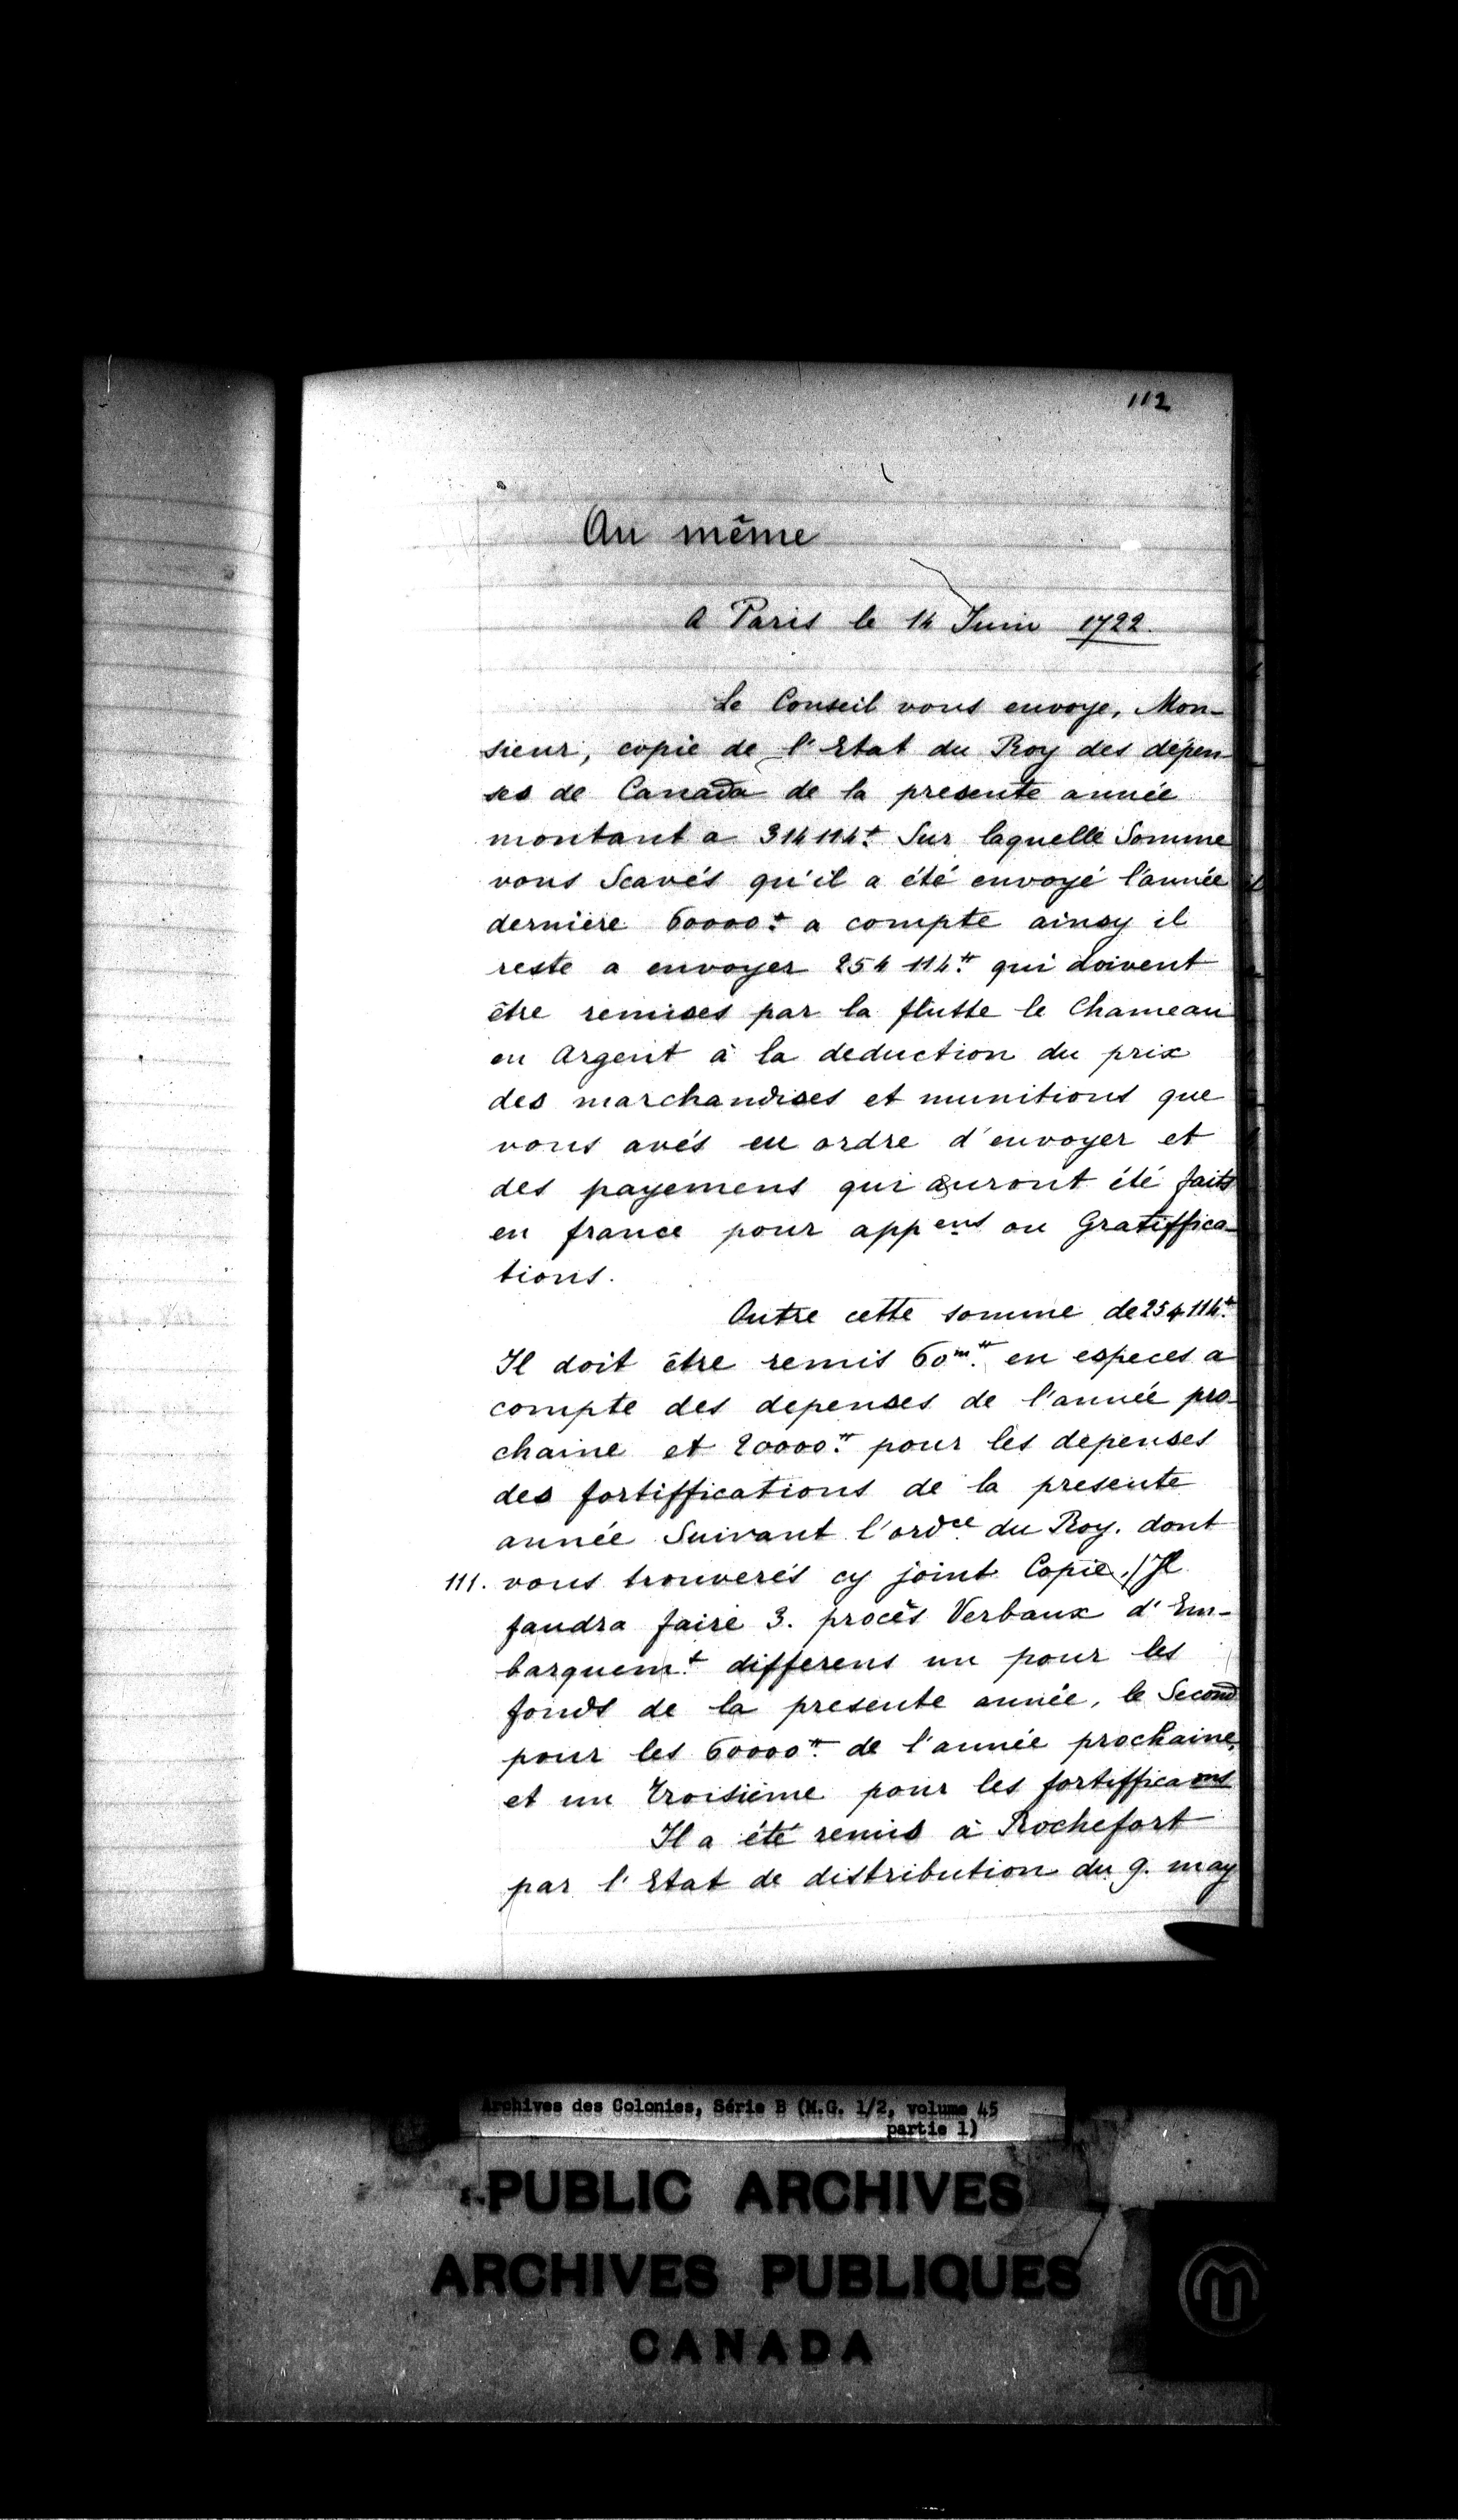 112
Au même
A Paris le 14 Juin 1722.
Le Conseil vous envoye, Mon-
sieur, copie de l'Etat du Roy des dépen-
ses de Canada de la presente année
montant a 314114ᵗ Sur laquelle Somme
vous Scavés qu'il a été envoyé l'année
derniere 60000ᵗ a compte ainsy il
reste a envoyer 254 114ᵗᵗ qui doivent
être remises par la flutte le Chameau
en Argent à la deduction du prix
des marchandises et munitions que
vous avés eu ordre d'envoyer et
des payemens qui auront été faits
en france pour appᵉⁿˢ ou Gratiffica-
tions.
Outre cette somme de 254114ᵗ
Il doit être remis 60ᵐ.ᵗᵗ en especes a
compte des depenses de l'année pro-
chaine et 20000ᵗᵗ pour les depenses
des fortiffications de la presente
année Suivant l'ordᶜᵉ du Roy. dont
111. vous trouverés cy joint Copie./Il
faudra faire 3. procès Verbaux d'Em-
barquemᵗ differens un pour les
fonds de la presente année, le Second
pour les 60000ᵗᵗ de l'année prochaine,
et un troisième pour les fortifficaᵒⁿˢ
Il a été remis à Rochefort
par l'Etat de distribution du 9. may
Archives des Colonies, Série B (M.G. 1/2, volume 45
partie 1)
PUBLIC ARCHIVES
ARCHIVES PUBLIQUES
CANADA